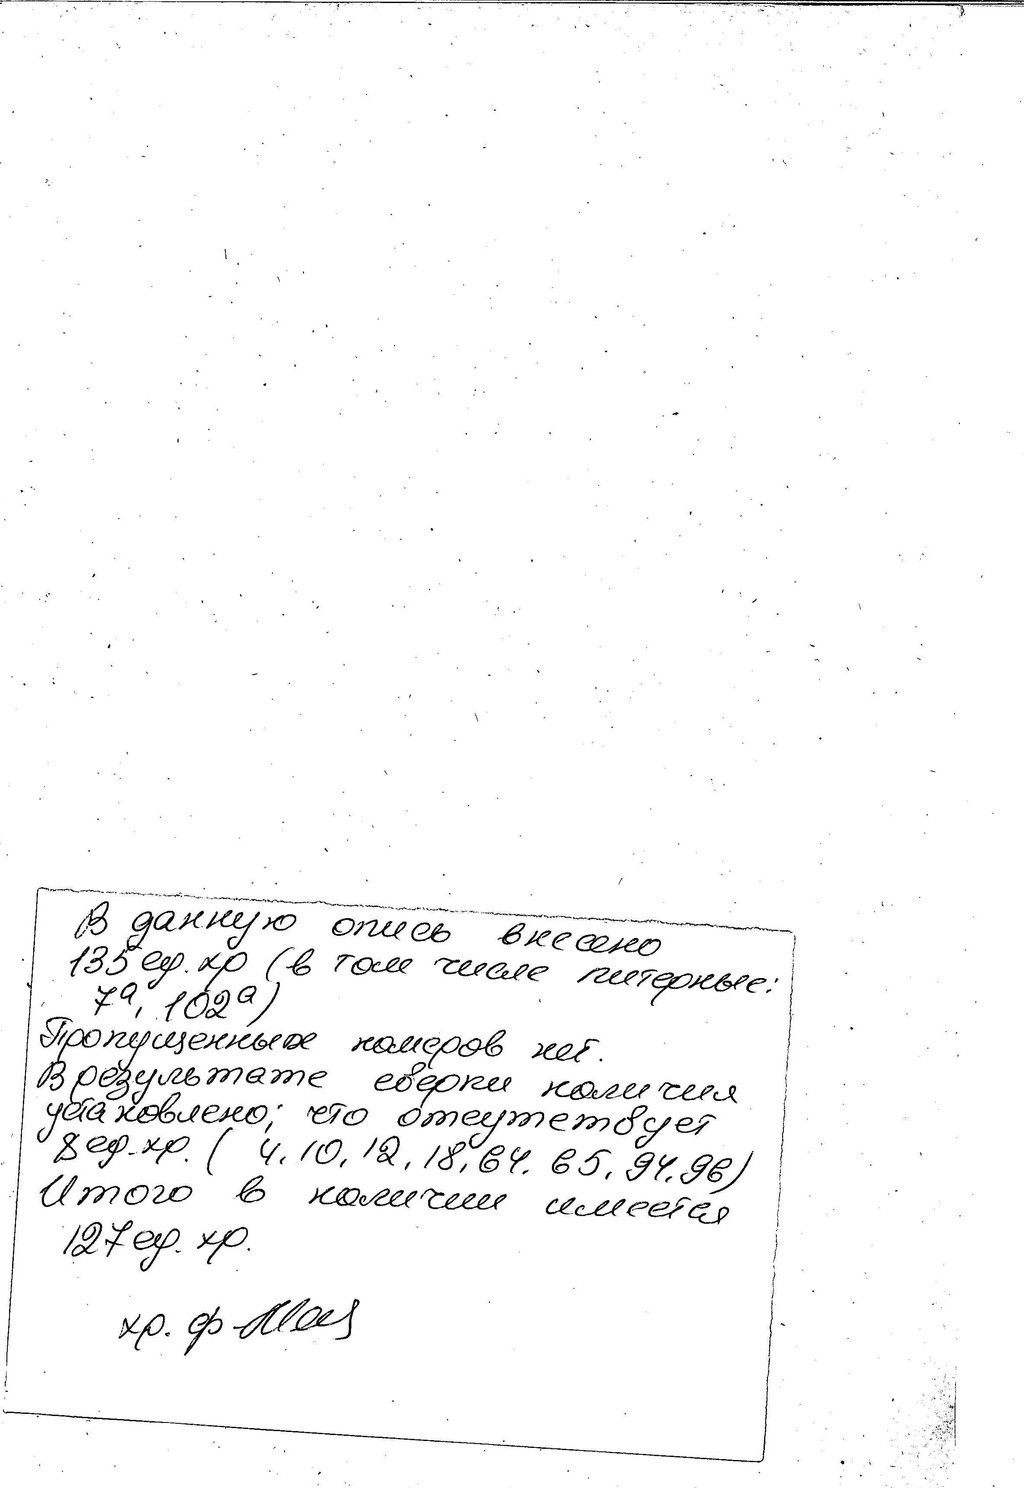 В данную опись внесено
135 ед. хр (в том числе литерные:
7а, 102а)
Пропущенных номеров нет.
В результате сверки наличия
установлено, что отсутствует
8 ед. хр. ( 4, 10, 12, 18, 64, 65, 94, 96)
Итого в наличии имеется
127 ед. хр.
хр. ф